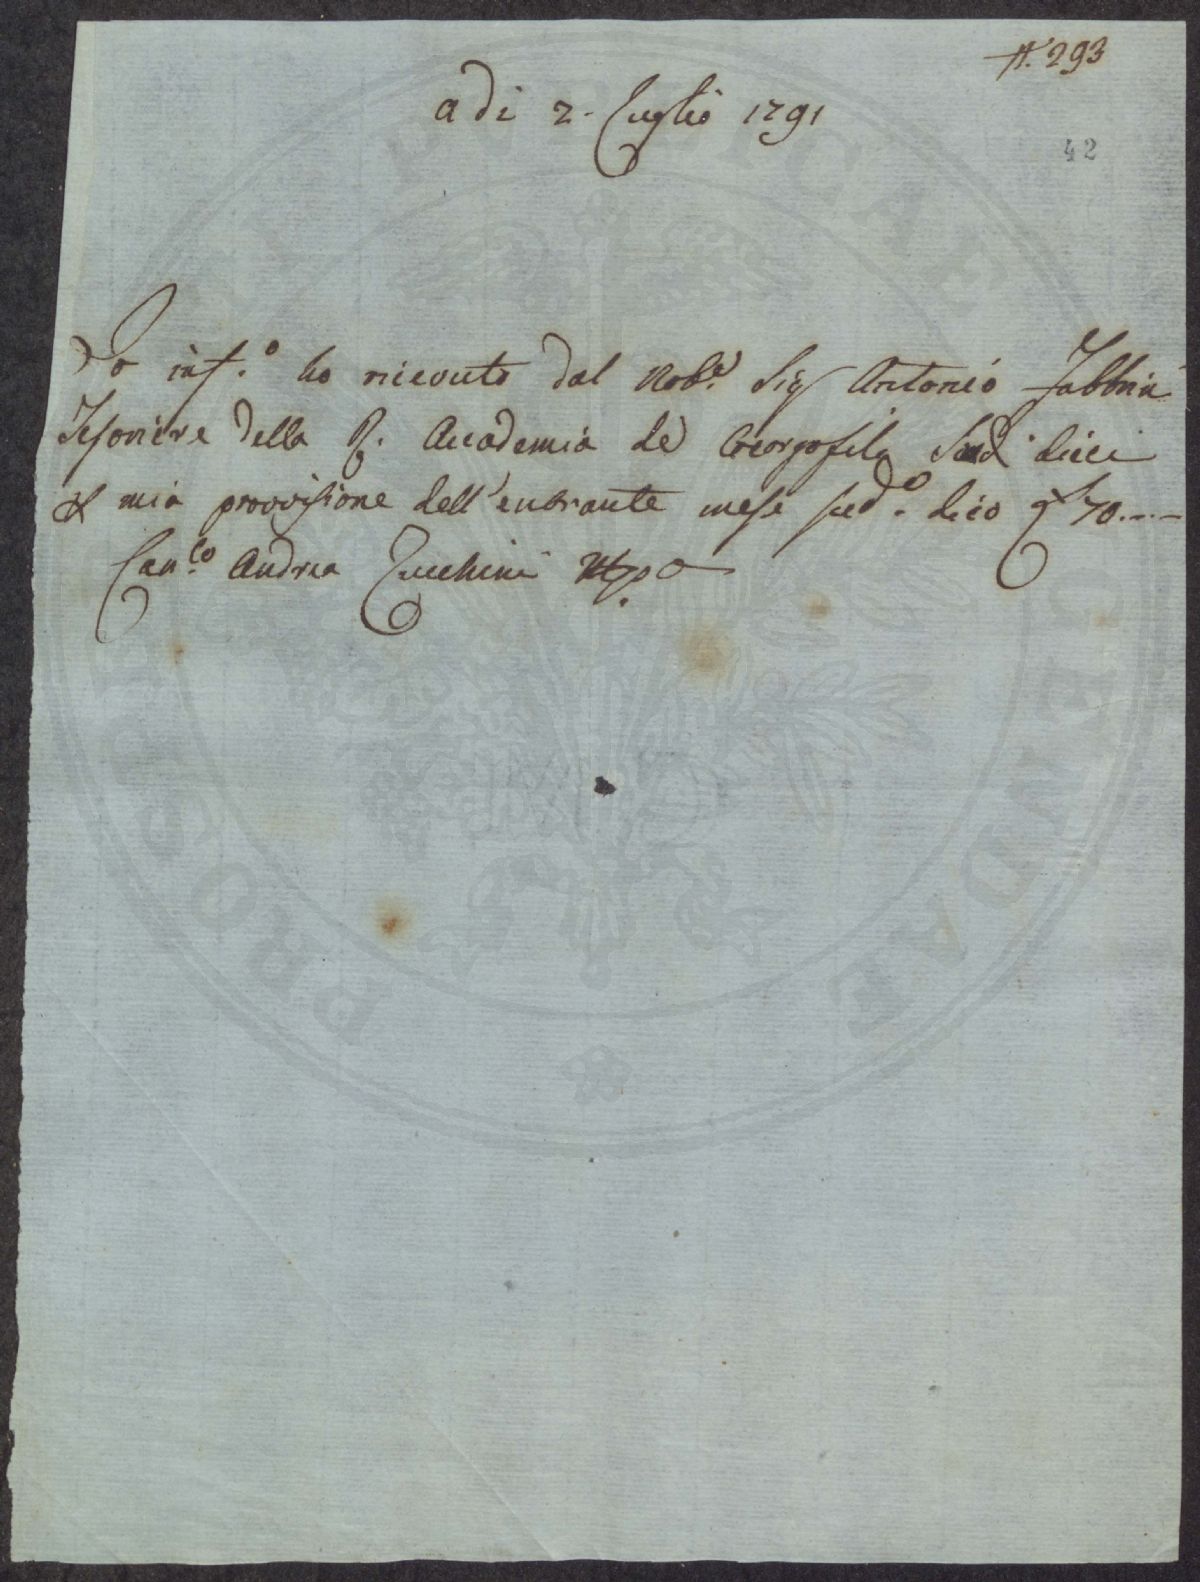 N.° 293
a di 2. Luglio 1791
42
Io inf.° ho ricevuto dal Nob.e Sig Antonio Fabbrini
Tesoriere della R. Accademia de Georgofili Scudi dieci
mia provvisione dell'entrante mese sud.° dico 70.---
Can.co Andrea Zucchini Mpa
PROSPERITATI PUBLICAE AUGENDAE